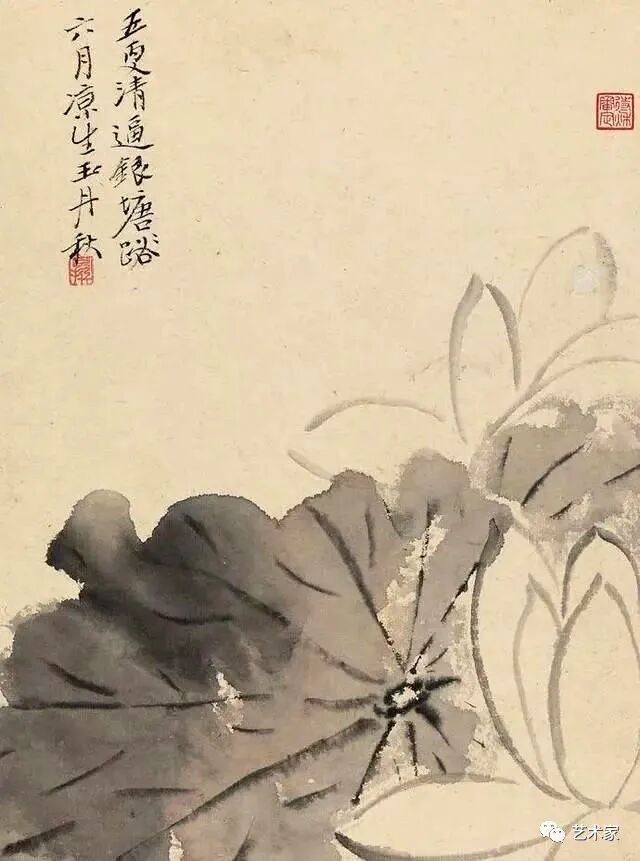 五更清逼銀塘路
六月凉生玉井秋
艺术家